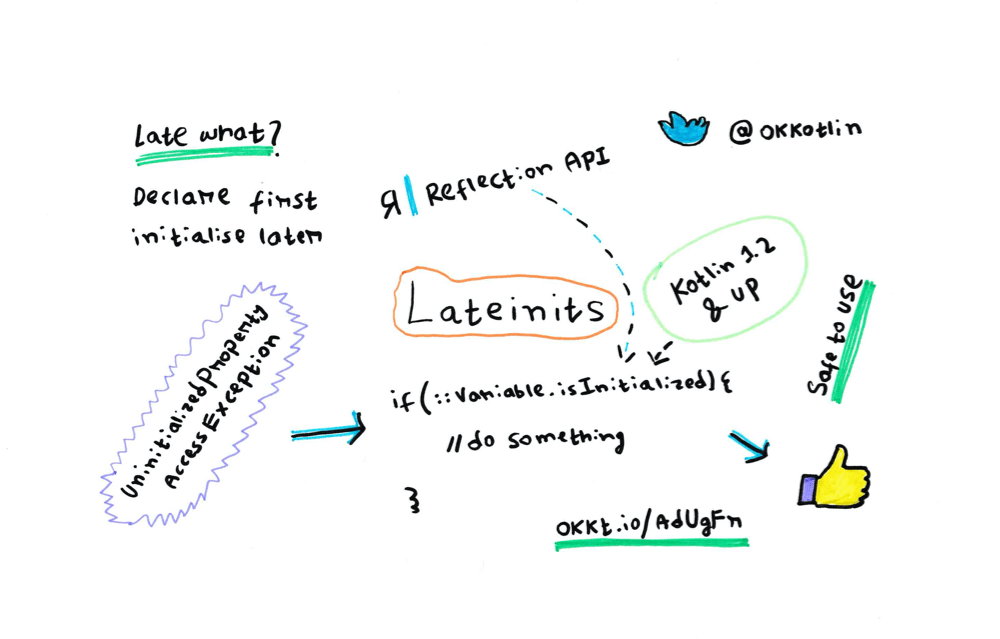 Late what?
Declare first
initialise later
@OKKotlin
Я| Reflection API
Kotlin 1.2
& UP
Lateinits
UninitializedProperty
AccessException
if(::Variable.isInitialized){
//do something
}
Safe to use
OKKt.io/AdUgFr